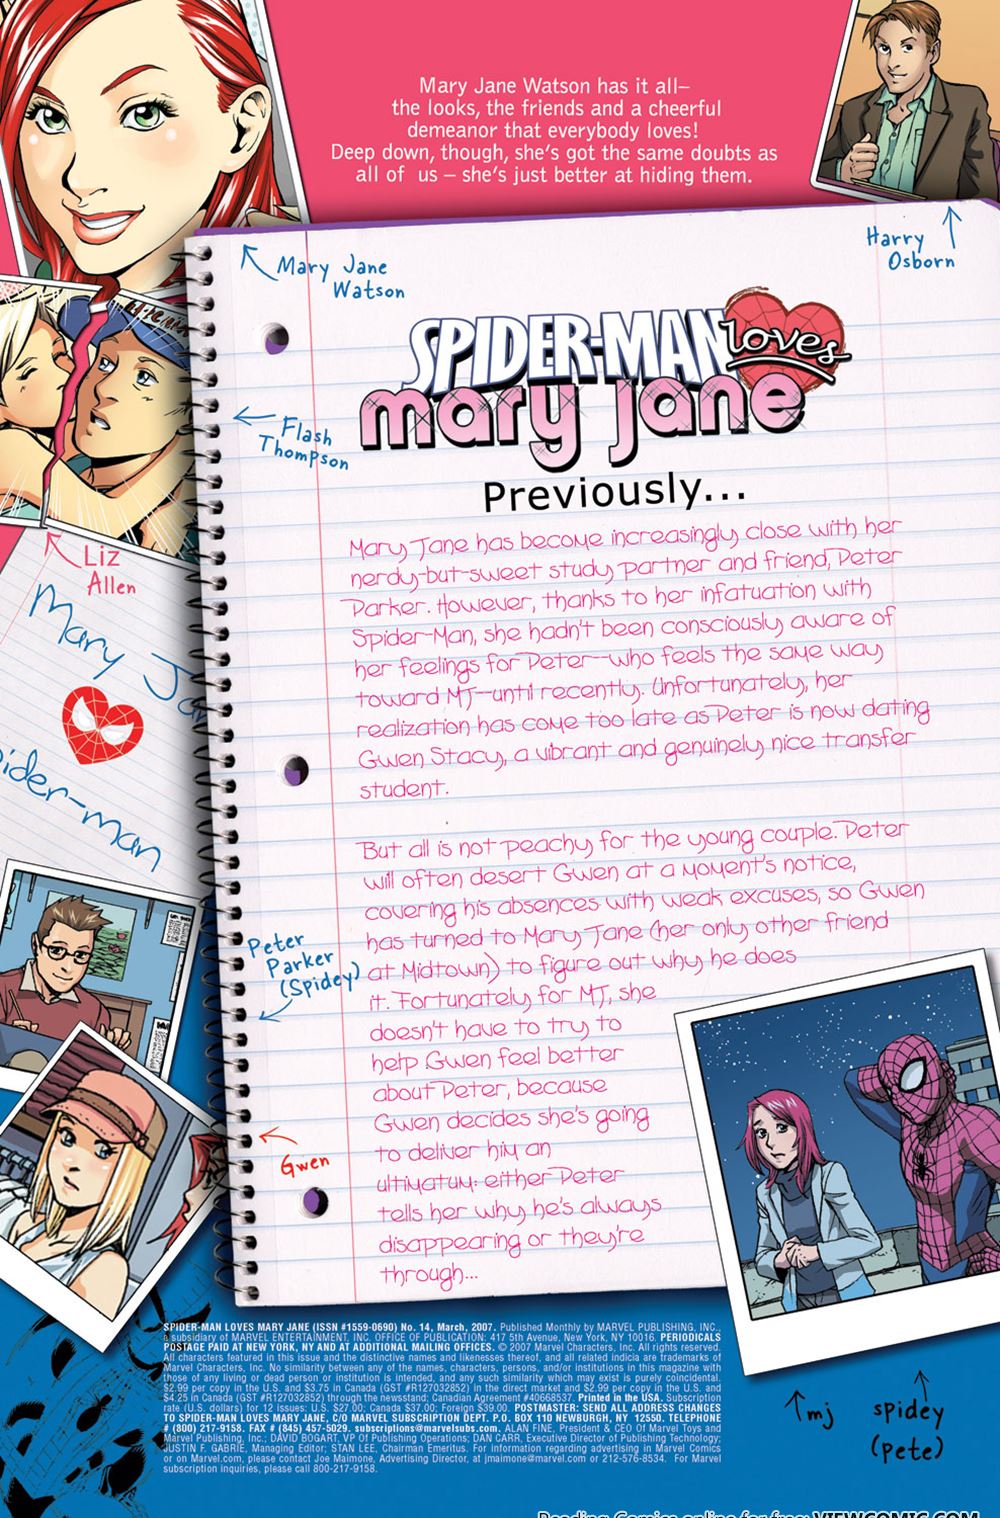 Mary Jane Watson has it all–
the looks, the friends and a cheerful
demeanor that everybody loves!
Deep down, though, she's got the same doubts as
all of us – she's just better at hiding them.
Mary Jane
Watson
Harry
Osborn
SPIDER-MAN loves
mary jane
Flash
Thompson
Liz
Allen
Previously...
Mary Jane has become increasingly close with her
nerdy-but-sweet study partner and friend, Peter
Parker. However, thanks to her infatuation with
Spider-Man, she hadn't been consciously aware of
her feelings for Peter--who feels the same way
toward MJ--until recently. Unfortunately, her
realization has come too late as Peter is now dating
Gwen Stacy, a vibrant and genuinely nice transfer
student.
Mary Ja
ider-man
But all is not peachy for the young couple. Peter
will often desert Gwen at a moment's notice,
covering his absences with weak excuses, so Gwen
has turned to Mary Jane (her only other friend
at Midtown) to figure out why he does
it. Fortunately for MJ, she
doesn't have to try to
help Gwen feel better
about Peter, because
Gwen decides she's going
to deliver him an
ultimatum: either Peter
tells her why he's always
disappearing or they're
through...
Peter
Parker
(Spidey)
Gwen
mj
spidey
(pete)
SPIDER-MAN LOVES MARY JANE (ISSN #1559-0690) No. 14, March, 2007. Published Monthly by MARVEL PUBLISHING, INC.,
a subsidiary of MARVEL ENTERTAINMENT, INC. OFFICE OF PUBLICATION: 417 5th Avenue, New York, NY 10016. PERIODICALS
POSTAGE PAID AT NEW YORK, NY AND AT ADDITIONAL MAILING OFFICES. © 2007 Marvel Characters, Inc. All rights reserved.
All characters featured in this issue and the distinctive names and likenesses thereof, and all related indicia are trademarks of
Marvel Characters, Inc. No similarity between any of the names, characters, persons, and/or institutions in this magazine with
those of any living or dead person or institution is intended, and any such similarity which may exist is purely coincidental.
$2.99 per copy in the U.S. and $3.75 in Canada (GST #R127032852) in the direct market and $2.99 per copy in the U.S. and
$4.25 in Canada (GST #R127032852) through the newsstand; Canadian Agreement #40668537. Printed in the USA. Subscription
rate (U.S. dollars) for 12 issues: U.S. $27.00; Canada $37.00; Foreign $39.00. POSTMASTER: SEND ALL ADDRESS CHANGES
TO SPIDER-MAN LOVES MARY JANE, C/O MARVEL SUBSCRIPTION DEPT. P.O. BOX 110 NEWBURGH, NY 12550. TELEPHONE
# (800) 217-9158. FAX # (845) 457-5029. subscriptions@marvelsubs.com. ALAN FINE, President & CEO Of Marvel Toys and
Marvel Publishing, Inc.; DAVID BOGART, VP Of Publishing Operations; DAN CARR, Executive Director of Publishing Technology;
JUSTIN F. GABRIE, Managing Editor; STAN LEE, Chairman Emeritus. For information regarding advertising in Marvel Comics
or on Marvel.com, please contact Joe Maimone, Advertising Director, at jmaimone@marvel.com or 212-576-8534. For Marvel
subscription inquiries, please call 800-217-9158.
Reading Comics online for free: VIEWCOMIC.COM